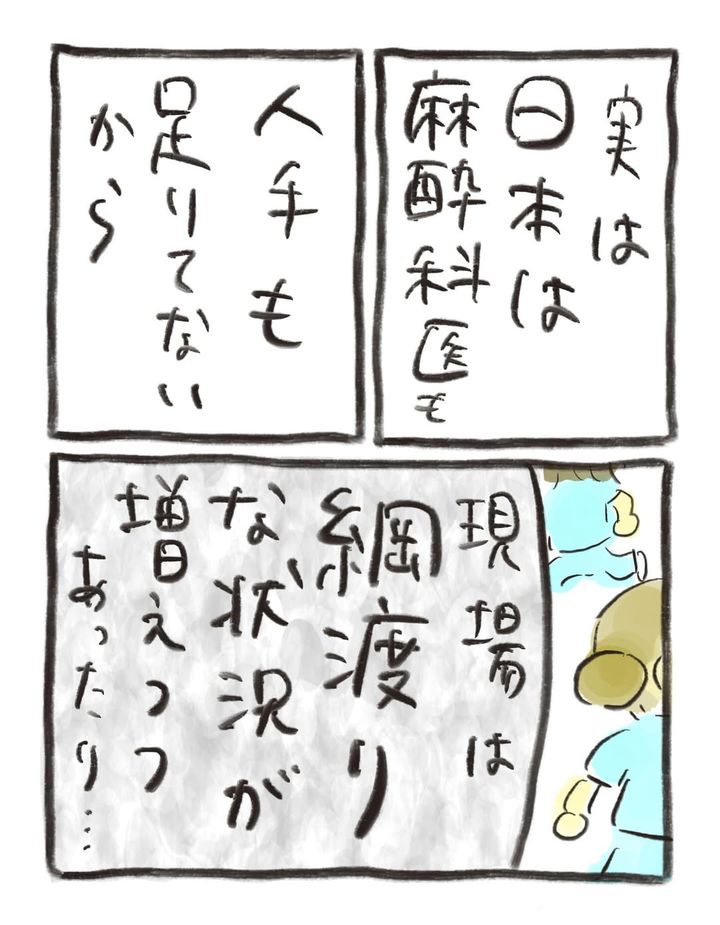 実は
日本は
麻酔科医も
人手も
足りてない
から
現場は
綱渡り
な状況が
増えつつ
あったり…